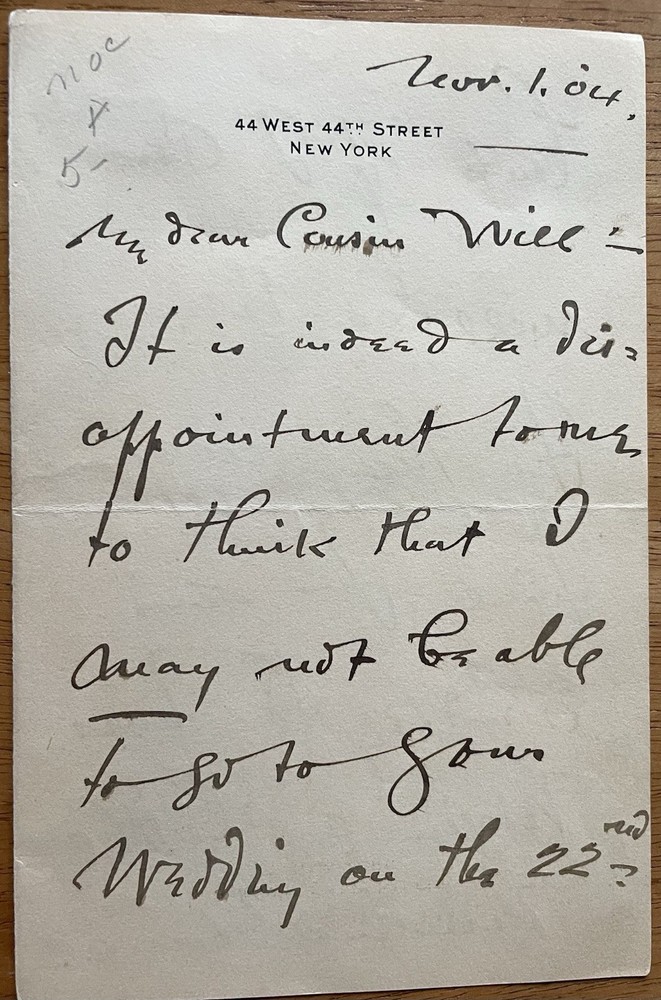 Nov. 1. 04.
noc
x
5-
44 WEST 44TH STREET
NEW YORK
My dear Cousin Will :-
It is indeed a dis=
appointment to me
to think that I
may not be able
to go to your
Wedding on the 22nd